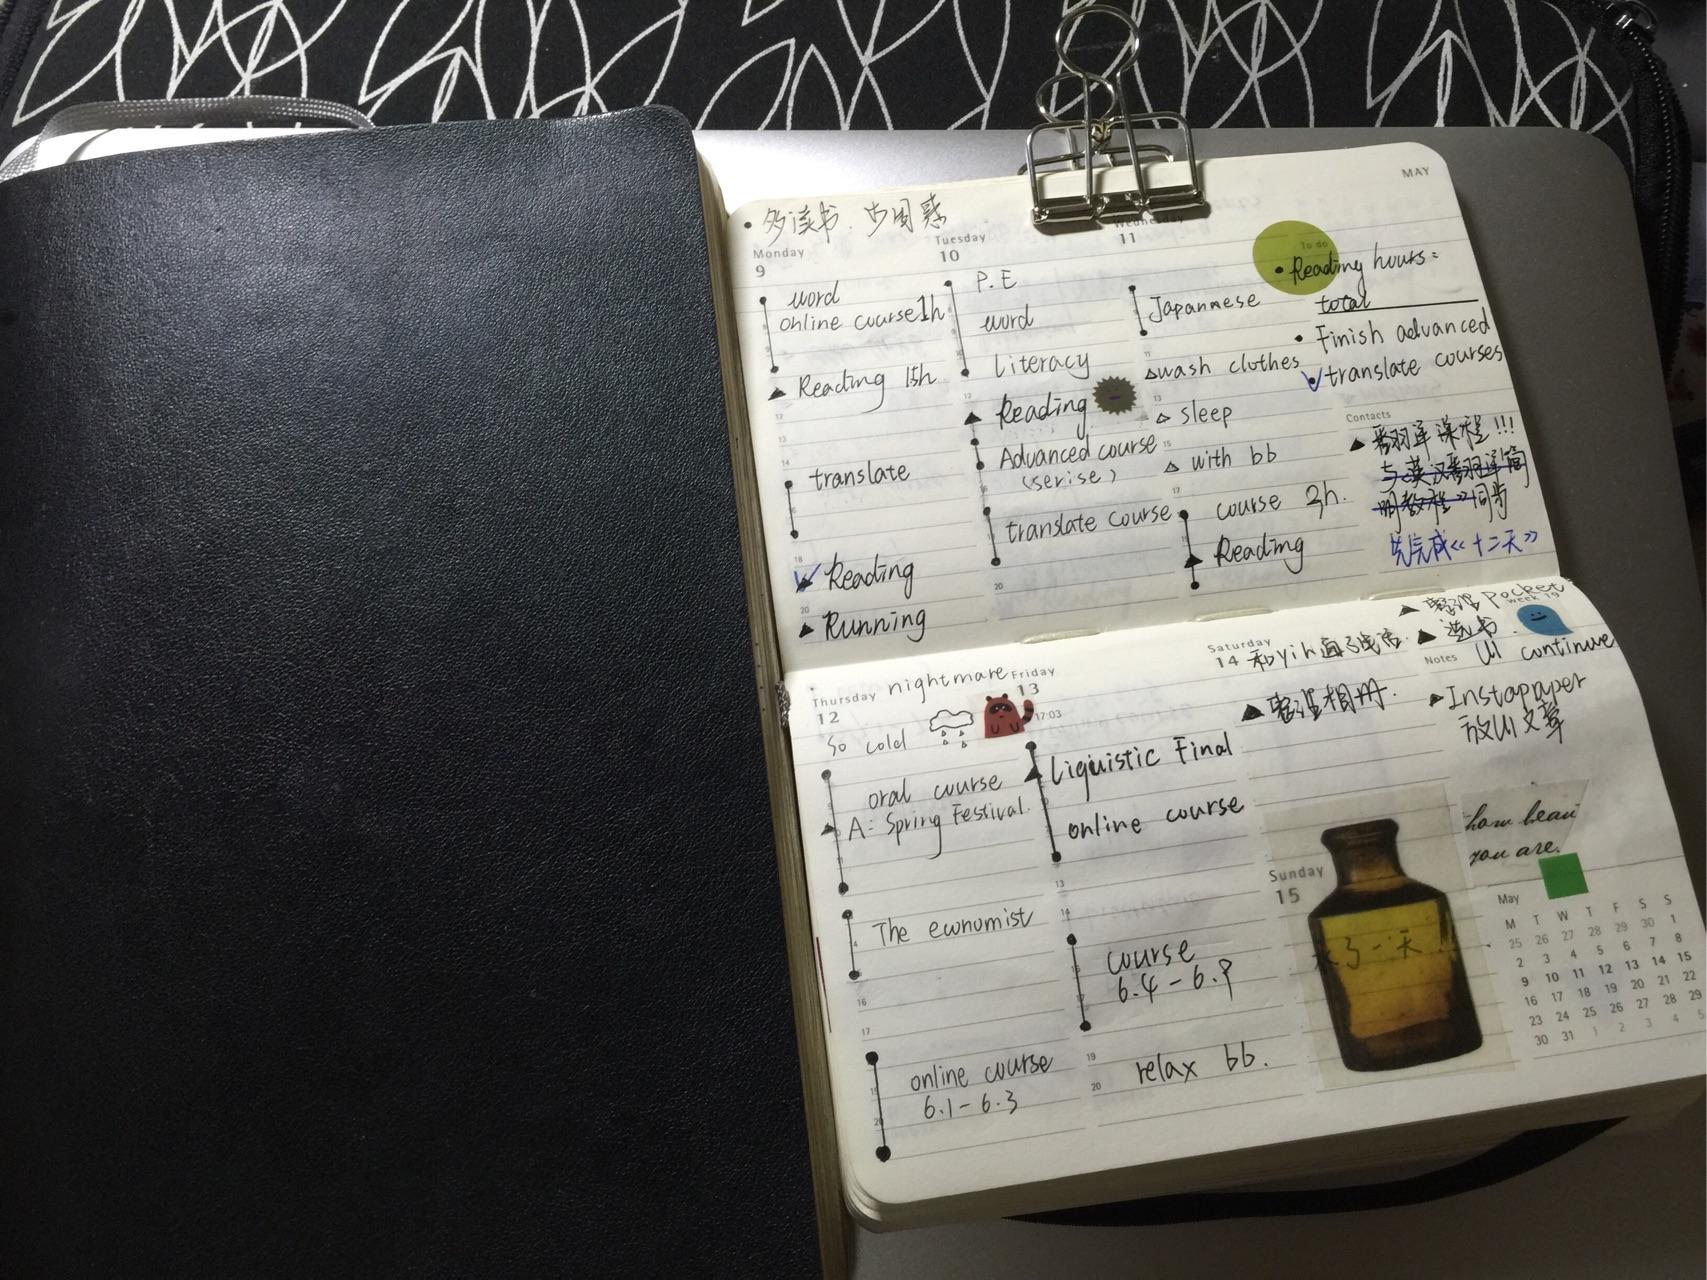 MAY
• 多读书、少困惑
Monday
9
word
online course 1h
Reading 1.5h
translate
Reading
Running
Tuesday
10
P.E
word
literacy
Reading
Advanced course
(serise)
translate course
Wednesday
11
Japannese
wash clothes
sleep
with bb
course 2h.
Reading
To do
• Reading hours:
total
• Finish advanced
• translate courses
Contacts
翻译课程!!!
与英汉翻译简
明教程》同步
先完成《十二天》
整理 Pocket
week 19
选书.
Thursday
nightmare
12
so cold
oral course
A: Spring Festival.
The economist
online course
6.1-6.3
Friday
13
17:03
Liguistic Final
online course
course
6.4-6.9
relax bb.
Saturday
14
整理相册.
Sunday
15
Notes
continue
Instapaper
文章
how beau
you are.
May
M T W T F S S
25 26 27 28 29 30 1
2 3 4 5 6 7 8
9 10 11 12 13 14 15
16 17 18 19 20 21 22
23 24 25 26 27 28 29
30 31 1 2 3 4 5